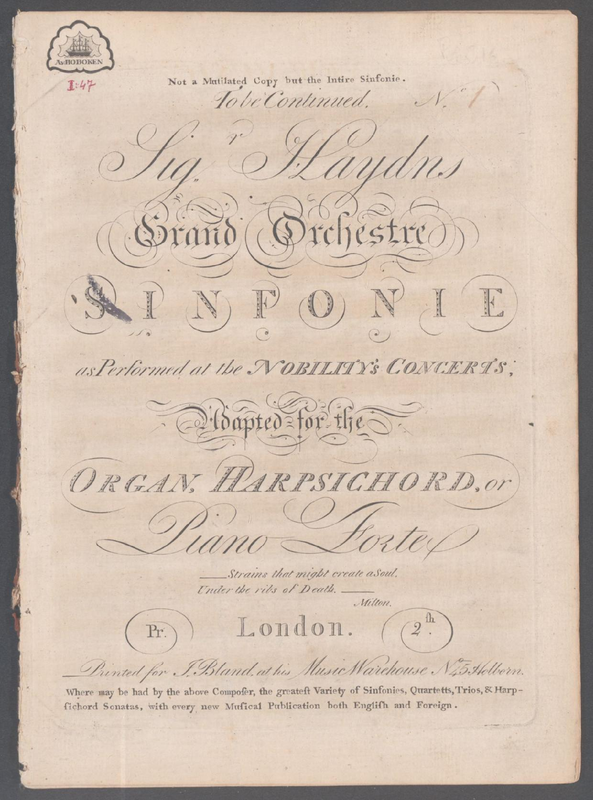 A. v. HOBOKEN
I:47
Not a Mutilated Copy but the Intire Sinfonie.
To be Continued. No. 1
Sigr. Haydns
Grand Orchestre
SINFONIE
as Performed at the NOBILITY's CONCERTS;
Adapted for the
ORGAN, HARPSICHORD, or
Piano Forte
Strains that might create a Soul,
Under the ribs of Death.
Milton.
Pr. London. 2th.
Printed for J. Bland, at his Music Warehouse No. 45 Holborn.
Where may be had by the above Compoſer, the greateſt Variety of Sinfonies, Quartetts, Trios, & Harp-
ſichord Sonatas, with every new Muſical Publication both Engliſh and Foreign.